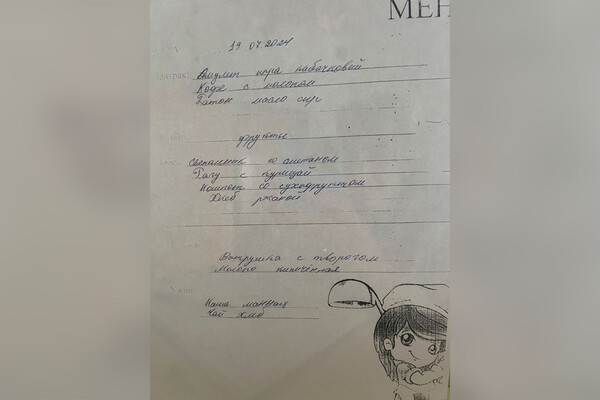 МЕН
19 07.2024
Завтрак
Омулит икра кабачковый
Кофе с молоком
Батон масло сыр
фрукты
Свекольник со сметаном
Рагу с курицай
Компот со сухофруктом
Хлеб ржаной
Ватрушка с творогом
Молоко кипичённая
Каша манная
Чай хлеб